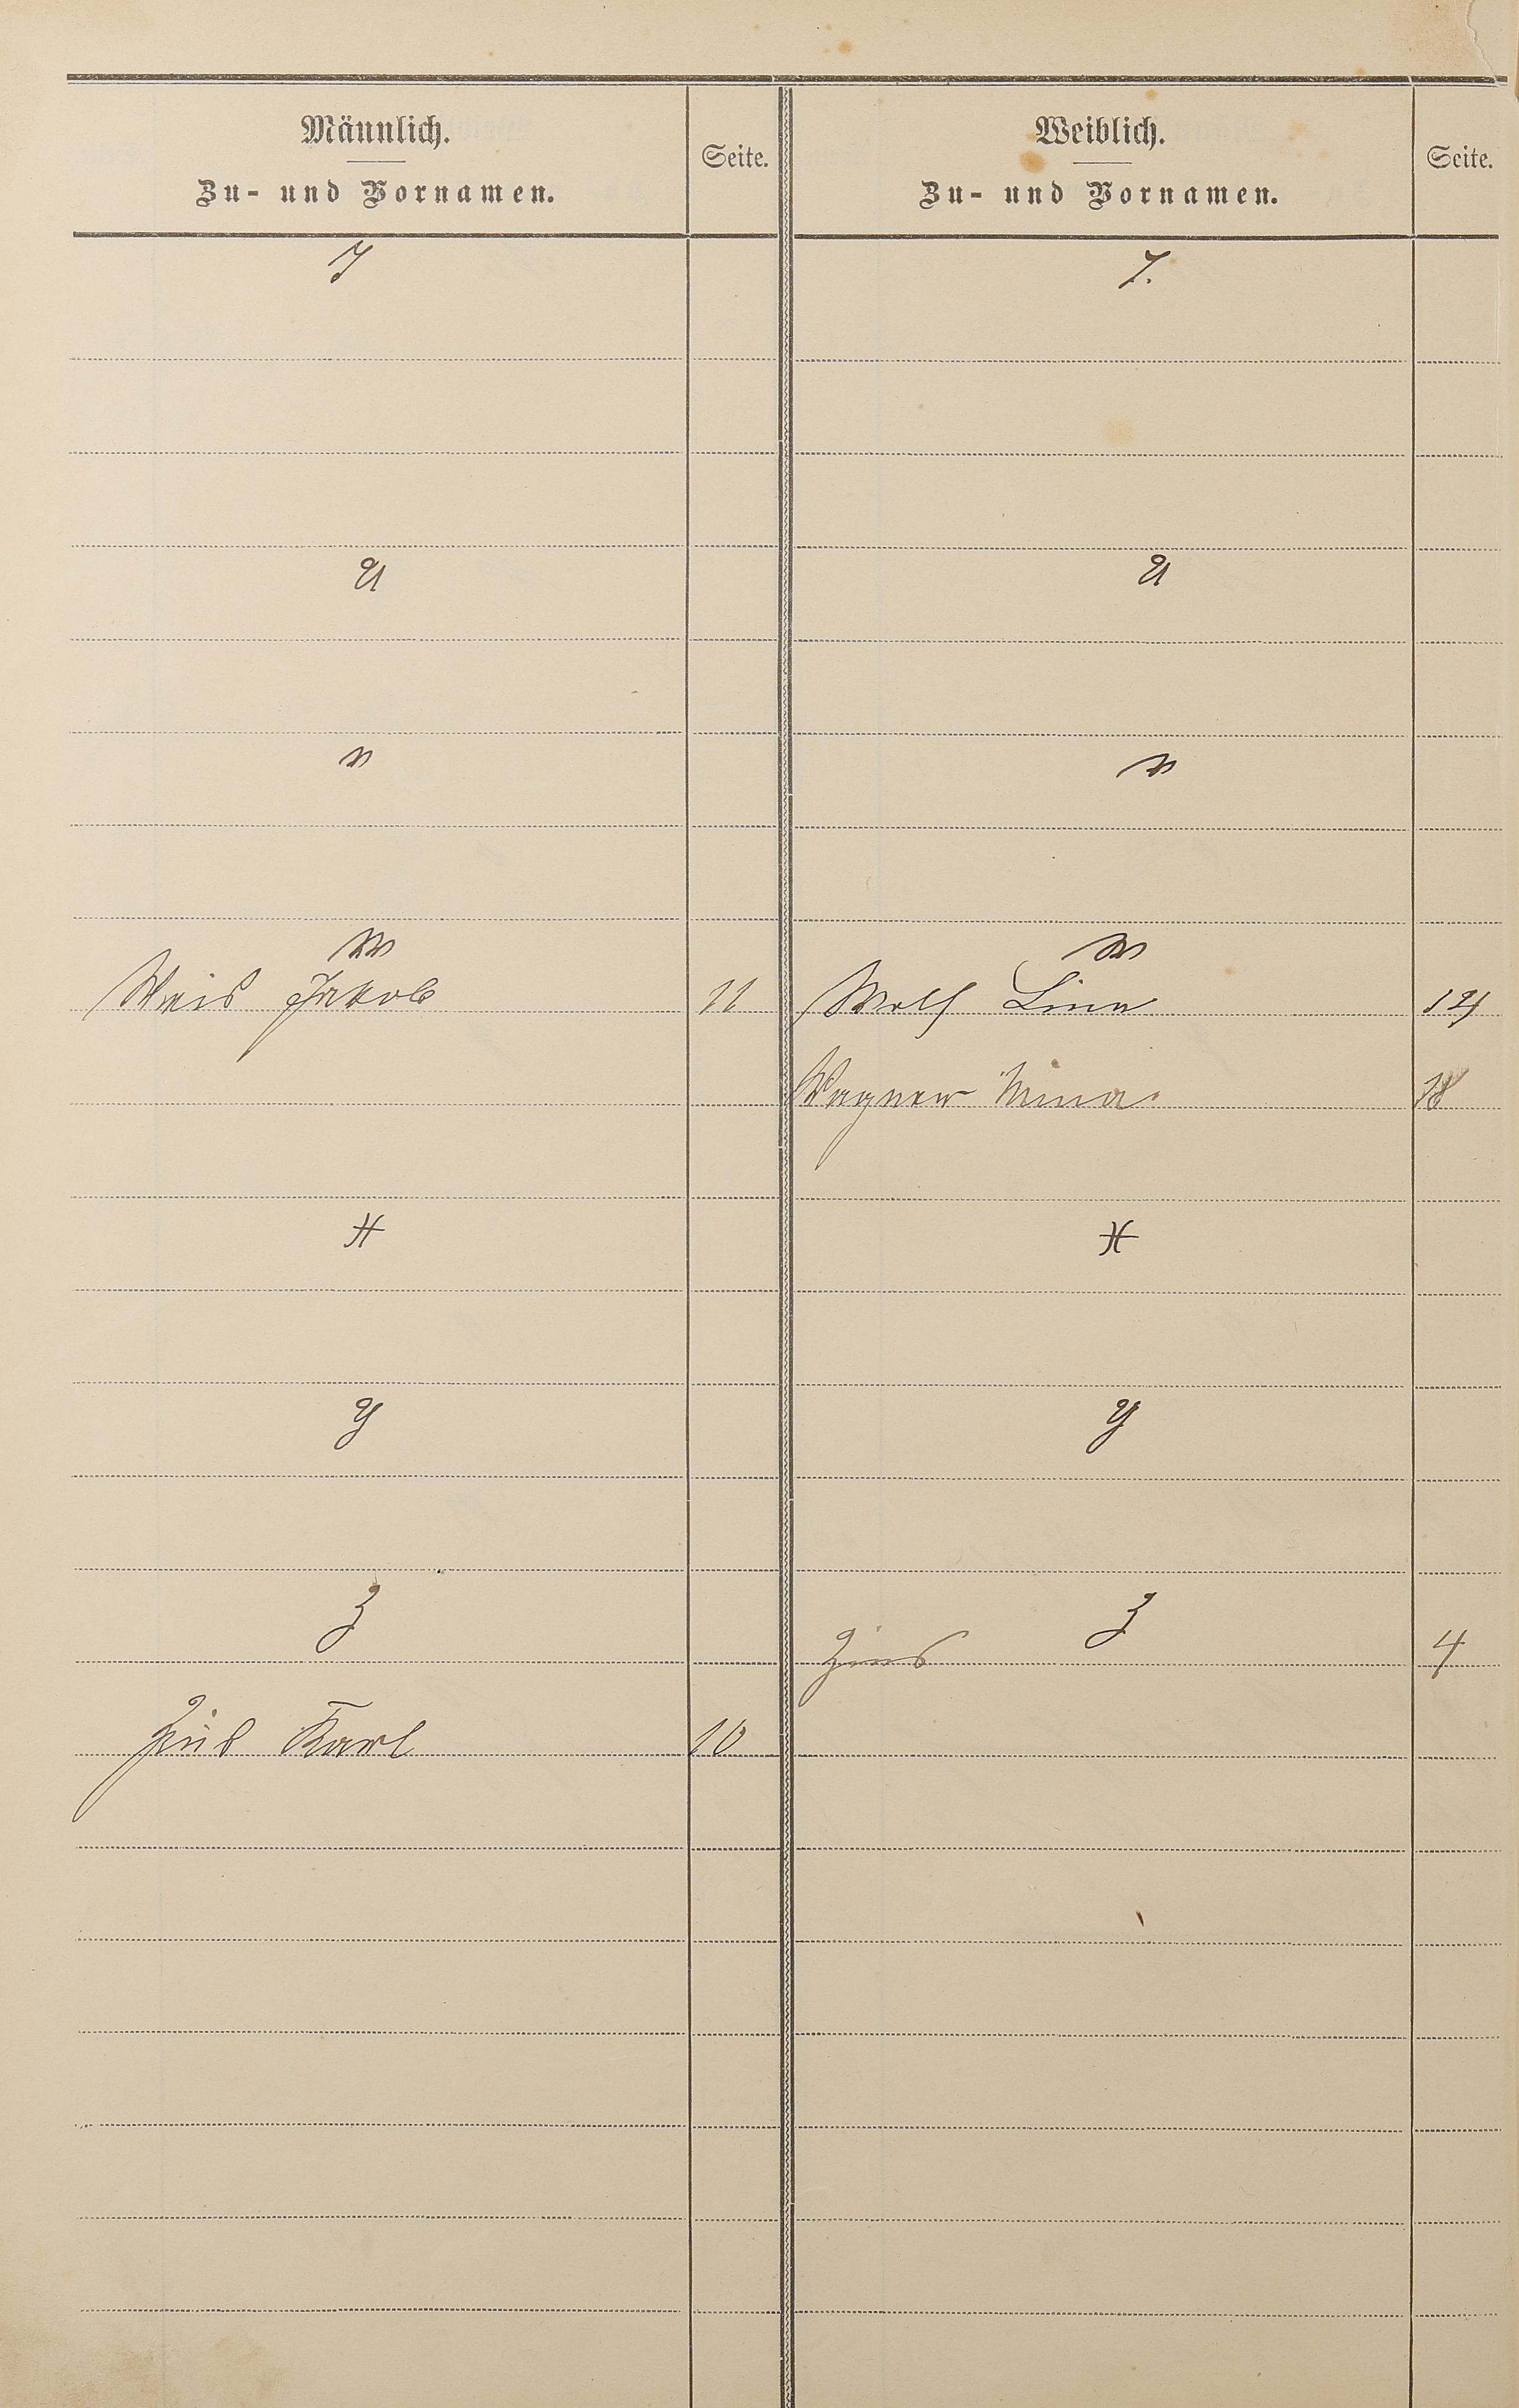 Männlich.
Zu- und Vornamen.
Seite.
Weiblich.
Zu- und Vornamen.
Seite.
T
T.
U
U
V
V
W
W
Weis Jakob 11
Wolf Lina 14
Wagner Mina. 18
X
X
Y
Y
Z
Z
4
Karl 10